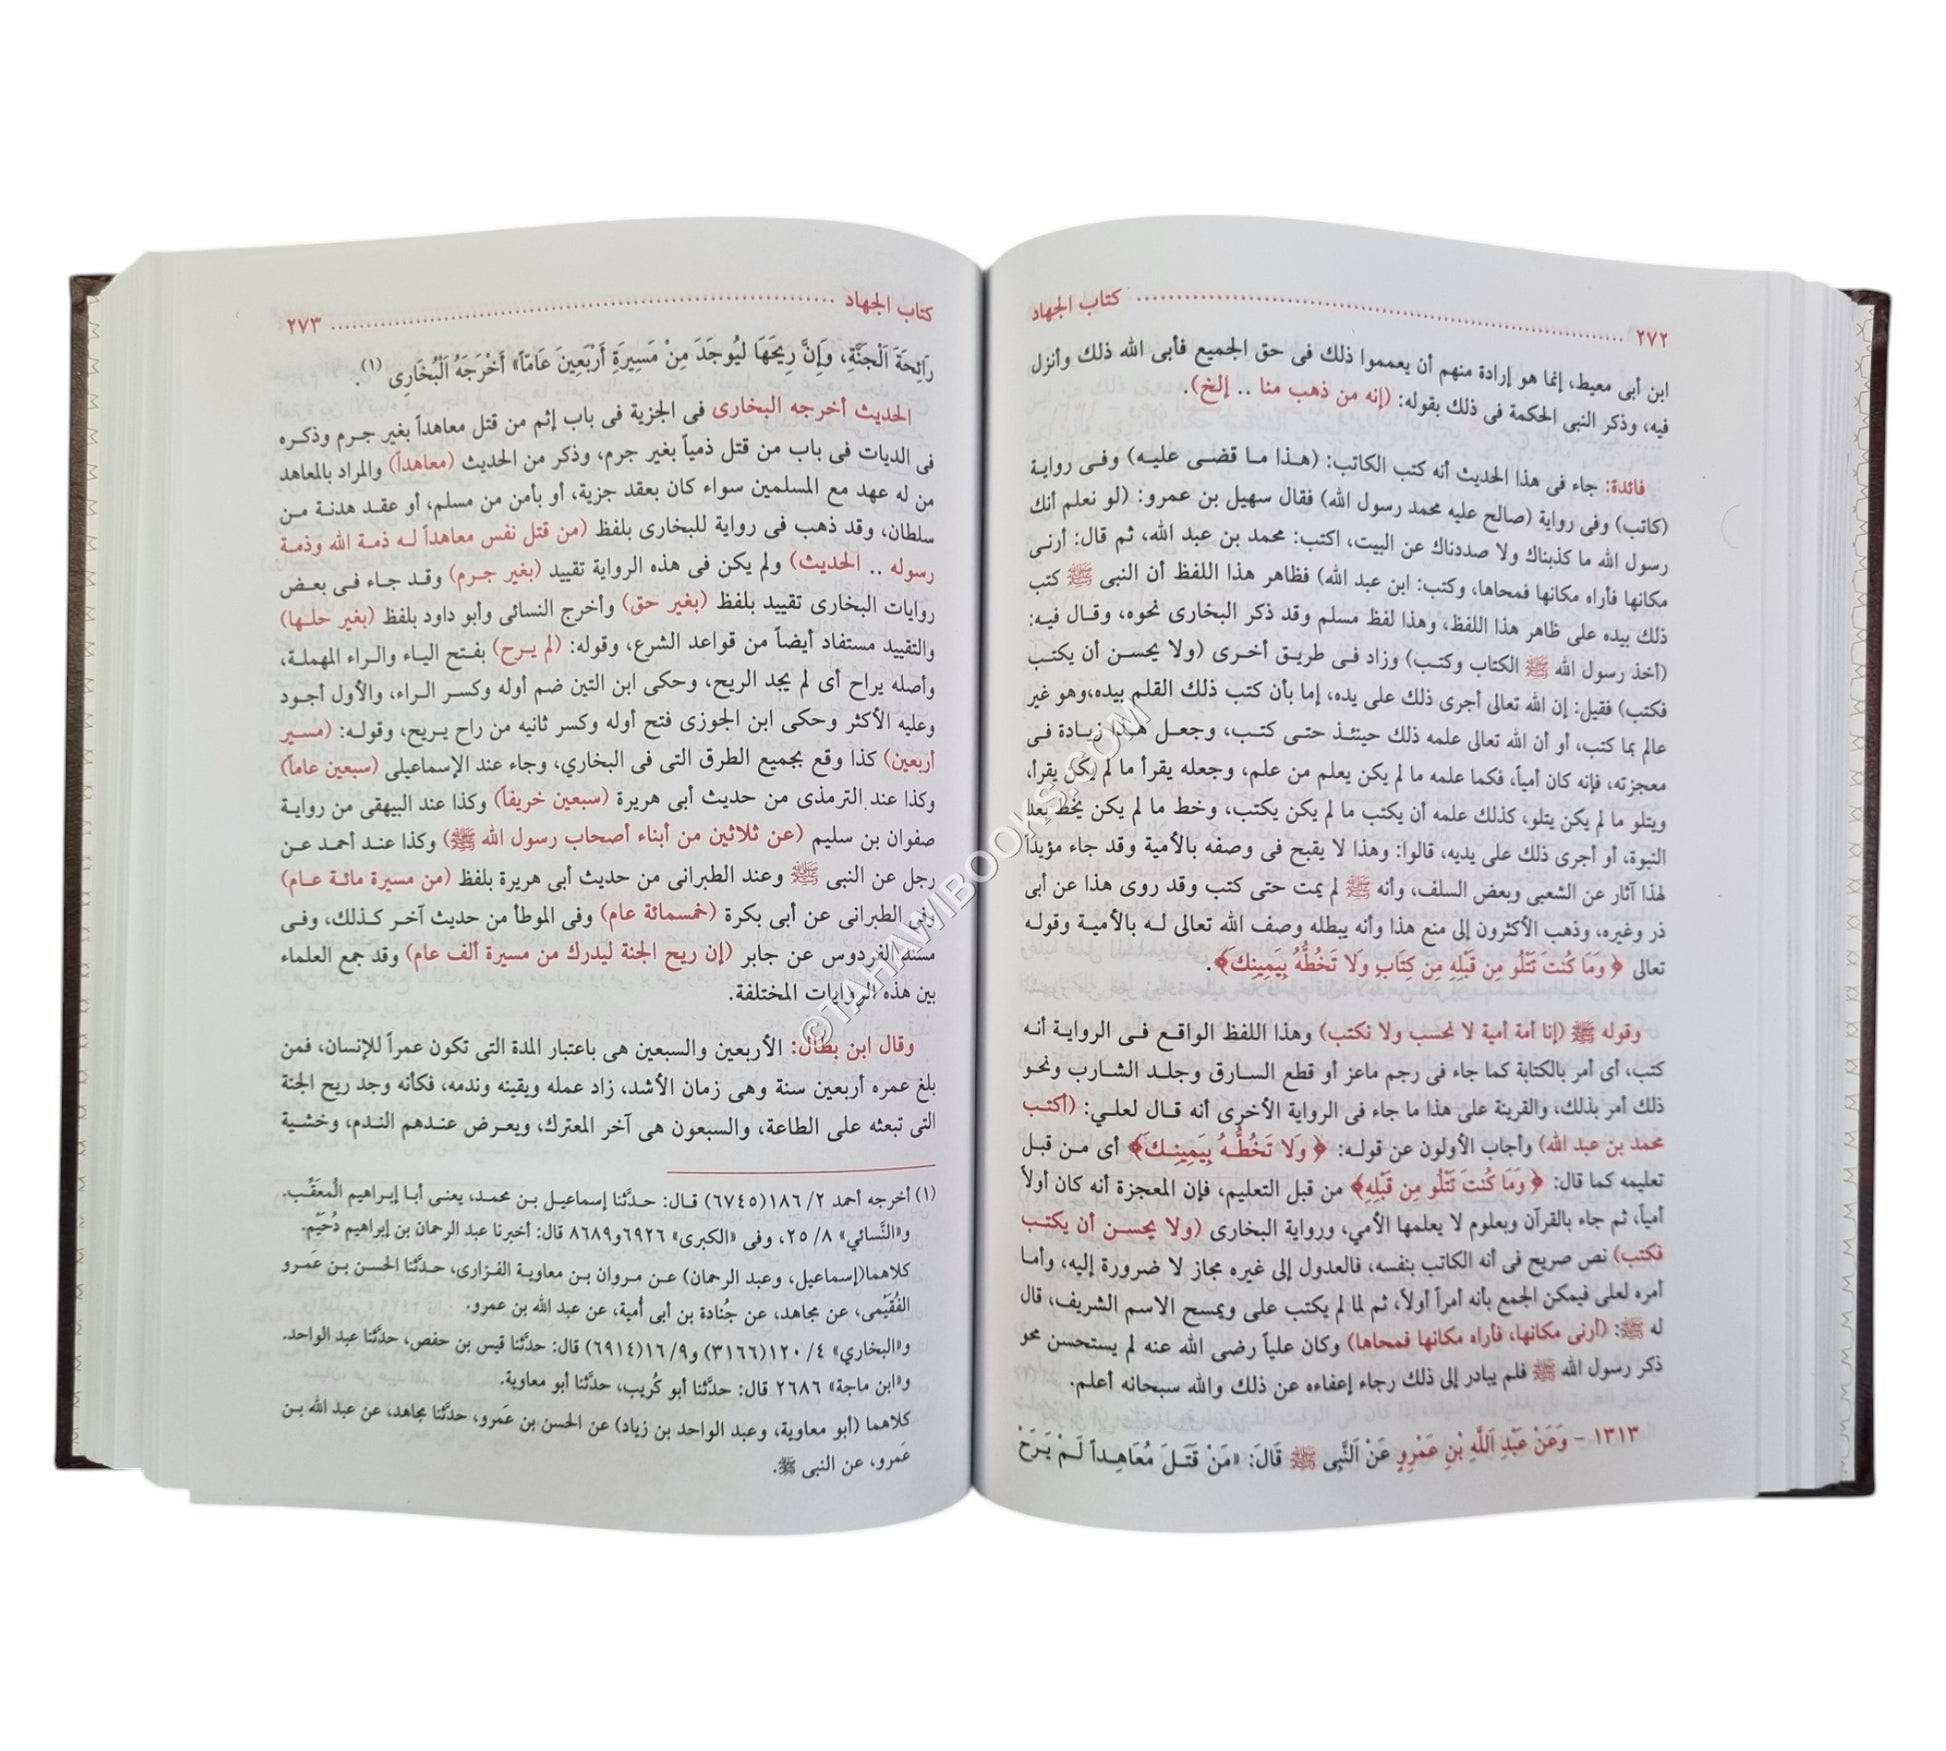 ٢٧٢ ........ كتاب الجهاد
ابن أبى معيط، إنما هو إرادة منهم أن يعمموا ذلك فى حق الجميع فأبى الله ذلك وأنزل
فيه، وذكر النبى الحكمة فى ذلك بقوله: (إنه من ذهب منا .. إلخ).
فائدة: جاء فى هذا الحديث أنه كتب الكاتب: (هـذا مـا قضـى عليـه) وفـى روايـة
(كاتب) وفى رواية (صالح عليه محمد رسول الله) فقال سهيل بن عمرو: (لو نعلم أنك
رسول الله ما كذبناك ولا صددناك عن البيت، اكتب: محمد بن عبد الله، ثم قال: أرنى
مكانها فأراه مكانها فمحاها، وكتب: ابن عبد الله) فظاهر هذا اللفظ أن النبى ﷺ كتب
ذلك بيده على ظاهر هذا اللفظ، وهذا لفظ مسلم وقد ذكر البخارى نحوه، وقـال فيـه:
(أخذ رسول الله ﷺ الكتاب وكتـب) وزاد فـى طريـق أخـرى (ولا يحسـن أن يكتـب
فكتب) فقيل: إن الله تعالى أجرى ذلك على يده، إما بأن كتب ذلك القلم بيده،وهو غير
عالم بما كتب، أو أن الله تعالى علمه ذلك حينئـذ حتـى كتـب، وجعـل هـذا زيـادة فـى
معجزته، فإنه كان أمياً، فكما علمه ما لم يكن يعلم من علم، وجعله يقرأ ما لم يكن يقرأ،
ويتلو ما لم يكن يتلو، كذلك علمه أن يكتب ما لم يكن يكتب، وخط ما لم يكن يخط بعد
النبوة، أو أجرى ذلك على يديه، قالوا: وهذا لا يقبح فى وصفه بالأمية وقد جاء مؤيداً
لهذا آثار عن الشعبى وبعض السلف، وأنه ﷺ لم يمت حتى كتب وقد روى هذا عن أبى
ذر وغيره، وذهب الأكثرون إلى منع هذا وأنه يبطله وصف الله تعالى لـه بالأميـة وقولـه
تعالى ﴿ وَمَا كُنتَ تَتْلُو مِن قَبْلِهِ مِن كِتَابٍ وَلَا تَخُطُّهُ بِيَمِينِكَ﴾.
وقوله ﷺ (إنا أمة أمية لا نحسب ولا نكتب) وهذا اللفظ الواقع فـى الروايـة أنـه
كتب، أى أمر بالكتابة كما جاء فى رجم ماعز أو قطع السـارق وجلـد الشـارب ونحـو
ذلك أمر بذلك، والقرينة على هذا ما جاء فى الرواية الأخرى أنه قـال لعلـي: (أكتـب
محمد بن عبد الله) وأجاب الأولون عن قولـه: ﴿ وَلَا تَخُطُّـهُ بِيَمِينِـكَ﴾ أى مـن قبـل
تعليمه كما قال: ﴿ وَمَا كُنتَ تَتْلُو مِن قَبْلِهِ﴾ من قبل التعليم، فإن المعجزة أنه كان أولاً
أمياً، ثم جاء بالقرآن وبعلوم لا يعلمها الأمي، ورواية البخارى (ولا يحسـن أن يكتـب
فكتب) نص صريح فى أنه الكاتب بنفسه، فالعدول إلى غيره مجاز لا ضرورة إليه، وأمـا
أمره لعلى فيمكن الجمع بأنه أمراً أولاً، ثم لما لم يكتب على ويمسح الاسم الشريف، قال
له ﷺ: (أرنى مكانها، فأراه مكانها فمحاها) وكان علياً رضى الله عنه لم يستحسن محو
ذكر رسول الله ﷺ فلم يبادر إلى ذلك رجاء إعفاءه عن ذلك والله سبحانه أعلم.
١٣١٣ - وَعَنْ عَبْدِ اللَّهِ بْنِ عَمْرٍو عَنْ النَّبِى ﷺ قَالَ: «مَنْ قَتَـلَ مُعَاهِـداً لَـمْ يَـرَحْ
كتاب الجهاد ........ ٢٧٣
رَائِحَةَ الْجَنَّةِ، وَإِنَّ رِيحَهَا لَيُوجَدَ مِنْ مَسِيرَةِ أَرْبَعِينَ عَامّاً» أَخْرَجَهُ الْبُخَارِى (١).
الحديث أخرجه البخارى فى الجزية فى باب إثم من قتل معاهداً بغير جـرم وذكـره
فى الديات فى باب من قتل ذمياً بغير جرم، وذكر من الحديث (معاهداً) والمراد بالمعاهد
من له عهد مع المسلمين سواء كان بعقد جزية، أو بأمن من مسلم، أو عقـد هدنـة مـن
سلطان، وقد ذهب فى رواية للبخارى بلفظ (من قتل نفس معاهداً لـه ذمـة الله وذمـة
رسوله .. الحديث) ولم يكن فى هذه الرواية تقييد (بغير جـرم) وقـد جـاء فـى بعـض
روايات البخارى تقييد بلفظ (بغير حق) وأخرج النسائى وأبو داود بلفظ (بغير حلـها)
والتقييد مستفاد أيضاً من قواعد الشرع، وقوله: (لم يـرح) بفتـح اليـاء والـراء المهملـة،
وأصله يراح أى لم يجد الريح، وحكى ابن التين ضم أوله وكسـر الـراء، والأول أجـود
وعليه الأكثر وحكى ابن الجوزى فتح أوله وكسر ثانيه من راح يـريح، وقولـه: (مسـير
أربعين) كذا وقع بجميع الطرق التى فى البخاري، وجاء عند الإسماعيلى (سبعين عاماً)
وكذا عند الترمذى من حديث أبى هريرة (سبعين خريفاً) وكذا عند البيهقى من روايـة
صفوان بن سليم (عن ثلاثين من أبناء أصحاب رسول الله ﷺ) وكذا عنـد أحمـد عـن
رجل عن النبى ﷺ وعند الطبرانى من حديث أبى هريرة بلفظ (من مسيرة مائـة عـام)
وفى الطبرانى عن أبى بكرة (خمسمائة عام) وفى الموطأ من حديث آخـر كـذلك، وفـى
مسند الفردوس عن جابر (إن ريح الجنة ليدرك من مسيرة ألف عام) وقد جمع العلماء
بين هذه الروايات المختلفة.
وقال ابن بطال: الأربعين والسبعين هى باعتبار المدة التى تكون عمراً للإنسان، فمن
بلغ عمره أربعين سنة وهى زمان الأشد، زاد عمله ويقينه وندمه، فكأنه وجد ريح الجنة
التى تبعثه على الطاعة، والسبعون هى آخر المعترك، ويعـرض عنـدهم النـدم، وخشـية
(١) أخرجه أحمد ٢/ ١٨٦(٦٧٤٥) قـال: حـدَّثنا إسماعيـل بـن محمـد، يعنـى أبـا إبـراهيم الْمعَقِّب.
و«النَّسائي» ٨/ ٢٥، وفى «الكبرى» ٦٩٢٦و٨٦٨٩ قال: أخبرنا عبد الرحمان بن إبراهيم دُحَيْم.
كلاهما(إسماعيل، وعبد الرحمان) عـن مـروان بـن معاويـة الفـزارى، حـدَّثنا الحسـن بـن عَمـرو
الفُقَيْمى، عن مجاهد، عن جُنادة بن أبى أُمية، عن عبد الله بن عمرو.
و«البخاري» ٤/ ١٢٠(٣١٦٦) و٩/ ١٦(٦٩١٤) قال: حدَّثنا قيس بن حفص، حدَّثنا عبد الواحد.
و«ابن ماجة» ٢٦٨٦ قال: حدَّثنا أبو كُريب، حدَّثنا أبو معاوية.
كلاهما (أبو معاوية، وعبد الواحد بن زياد) عن الحسن بن عَمرو، حدَّثنا مجاهد، عن عبد الله بـن
عَمرو، عن النبى ﷺ.
©TAHAWIBOOKS.COM